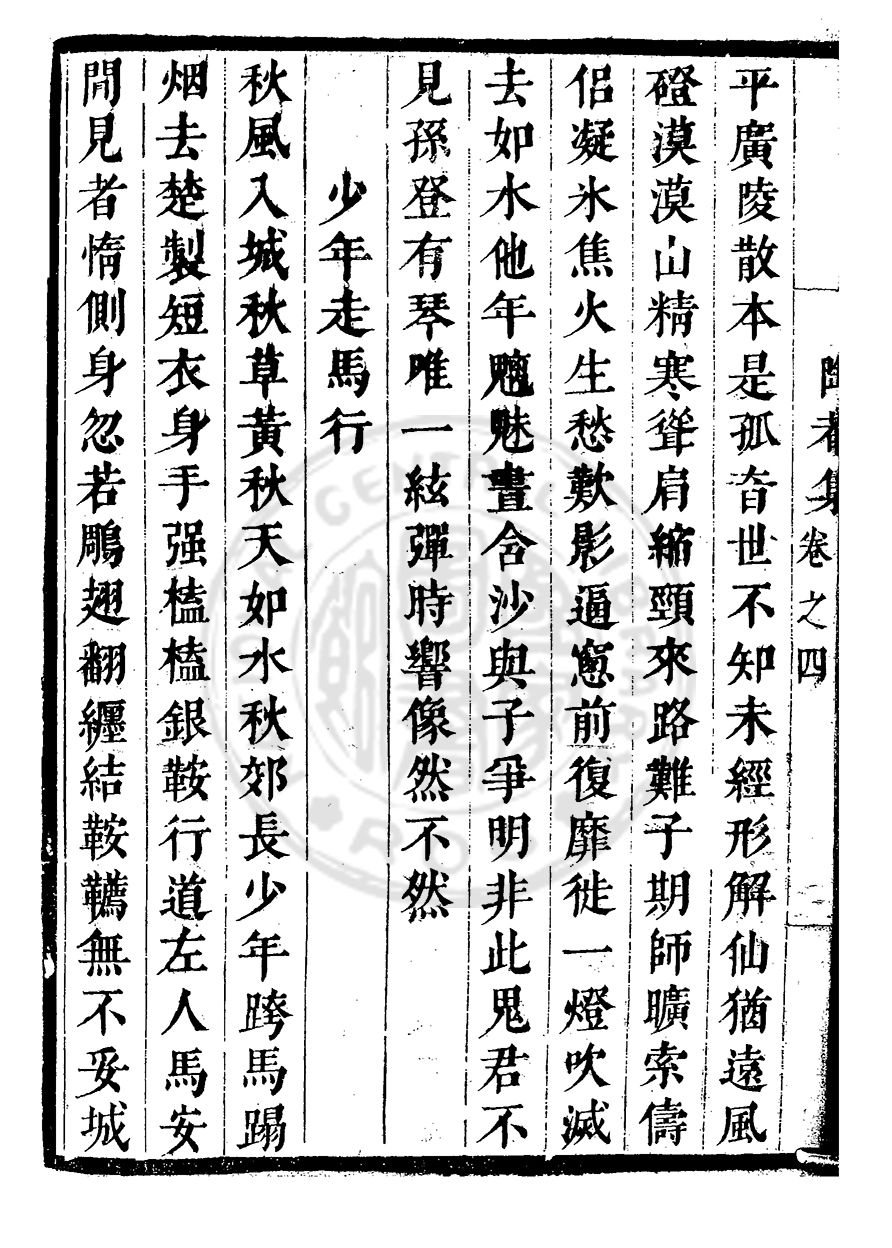 陶菴集 卷之四
平廣陵散本是孤音世不知未經形解仙猶遠風
磴漠漠山精寒聳肩縮頸來路難子期師曠索儔
侶凝氷焦火生愁歎影逼窻前復靡徙一燈吹滅
去如水他年魑魅晝含沙與子爭明非此鬼君不
見孫登有琴唯一絃彈時響像然不然
少年走馬行
秋風入城秋草黃秋天如水秋郊長少年跨馬蹋
烟去楚製短衣身手强榼榼銀鞍行道左人馬安
閒見者惰側身忽若鵰翅翻纏結鞍韉無不妥城